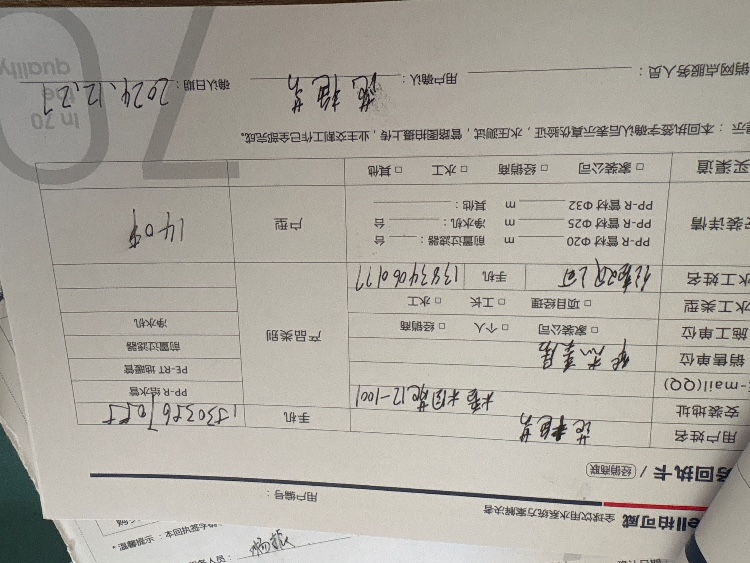 ell柏可威 全球饮用水系统方案解决者
用户编号：
回执卡 / 经销商联
用户姓名
手机
安装地址 12-1001
E-mail(QQ)
销售单位
施工单位 □ 家装公司 □ 个人 □ 经销商
水工类型 □ 项目经理 □ 工长 □ 水工
水工姓名 手机 13834060177
产品类别
PP-R 给水管
PE-RT 地暖管
前置过滤器
净水机
安装详情
PP-R 管材 Φ20 m 前置过滤器： 台
PP-R 管材 Φ25 m 净水机： 台
PP-R 管材 Φ32 m 其他：
户型 140平
买渠道 □ 家装公司 □ 经销商 □ 水工 □ 其他
示：本回执签字确认后表示真伪验证，水压测试，管路图拍摄上传，业主交割工作已全部完成。
销网点服务人员： 用户确认： 确认日期：2024.12.27
In 70
the
quality
70
*温馨提示：本回执签字确
务人员： 杨振